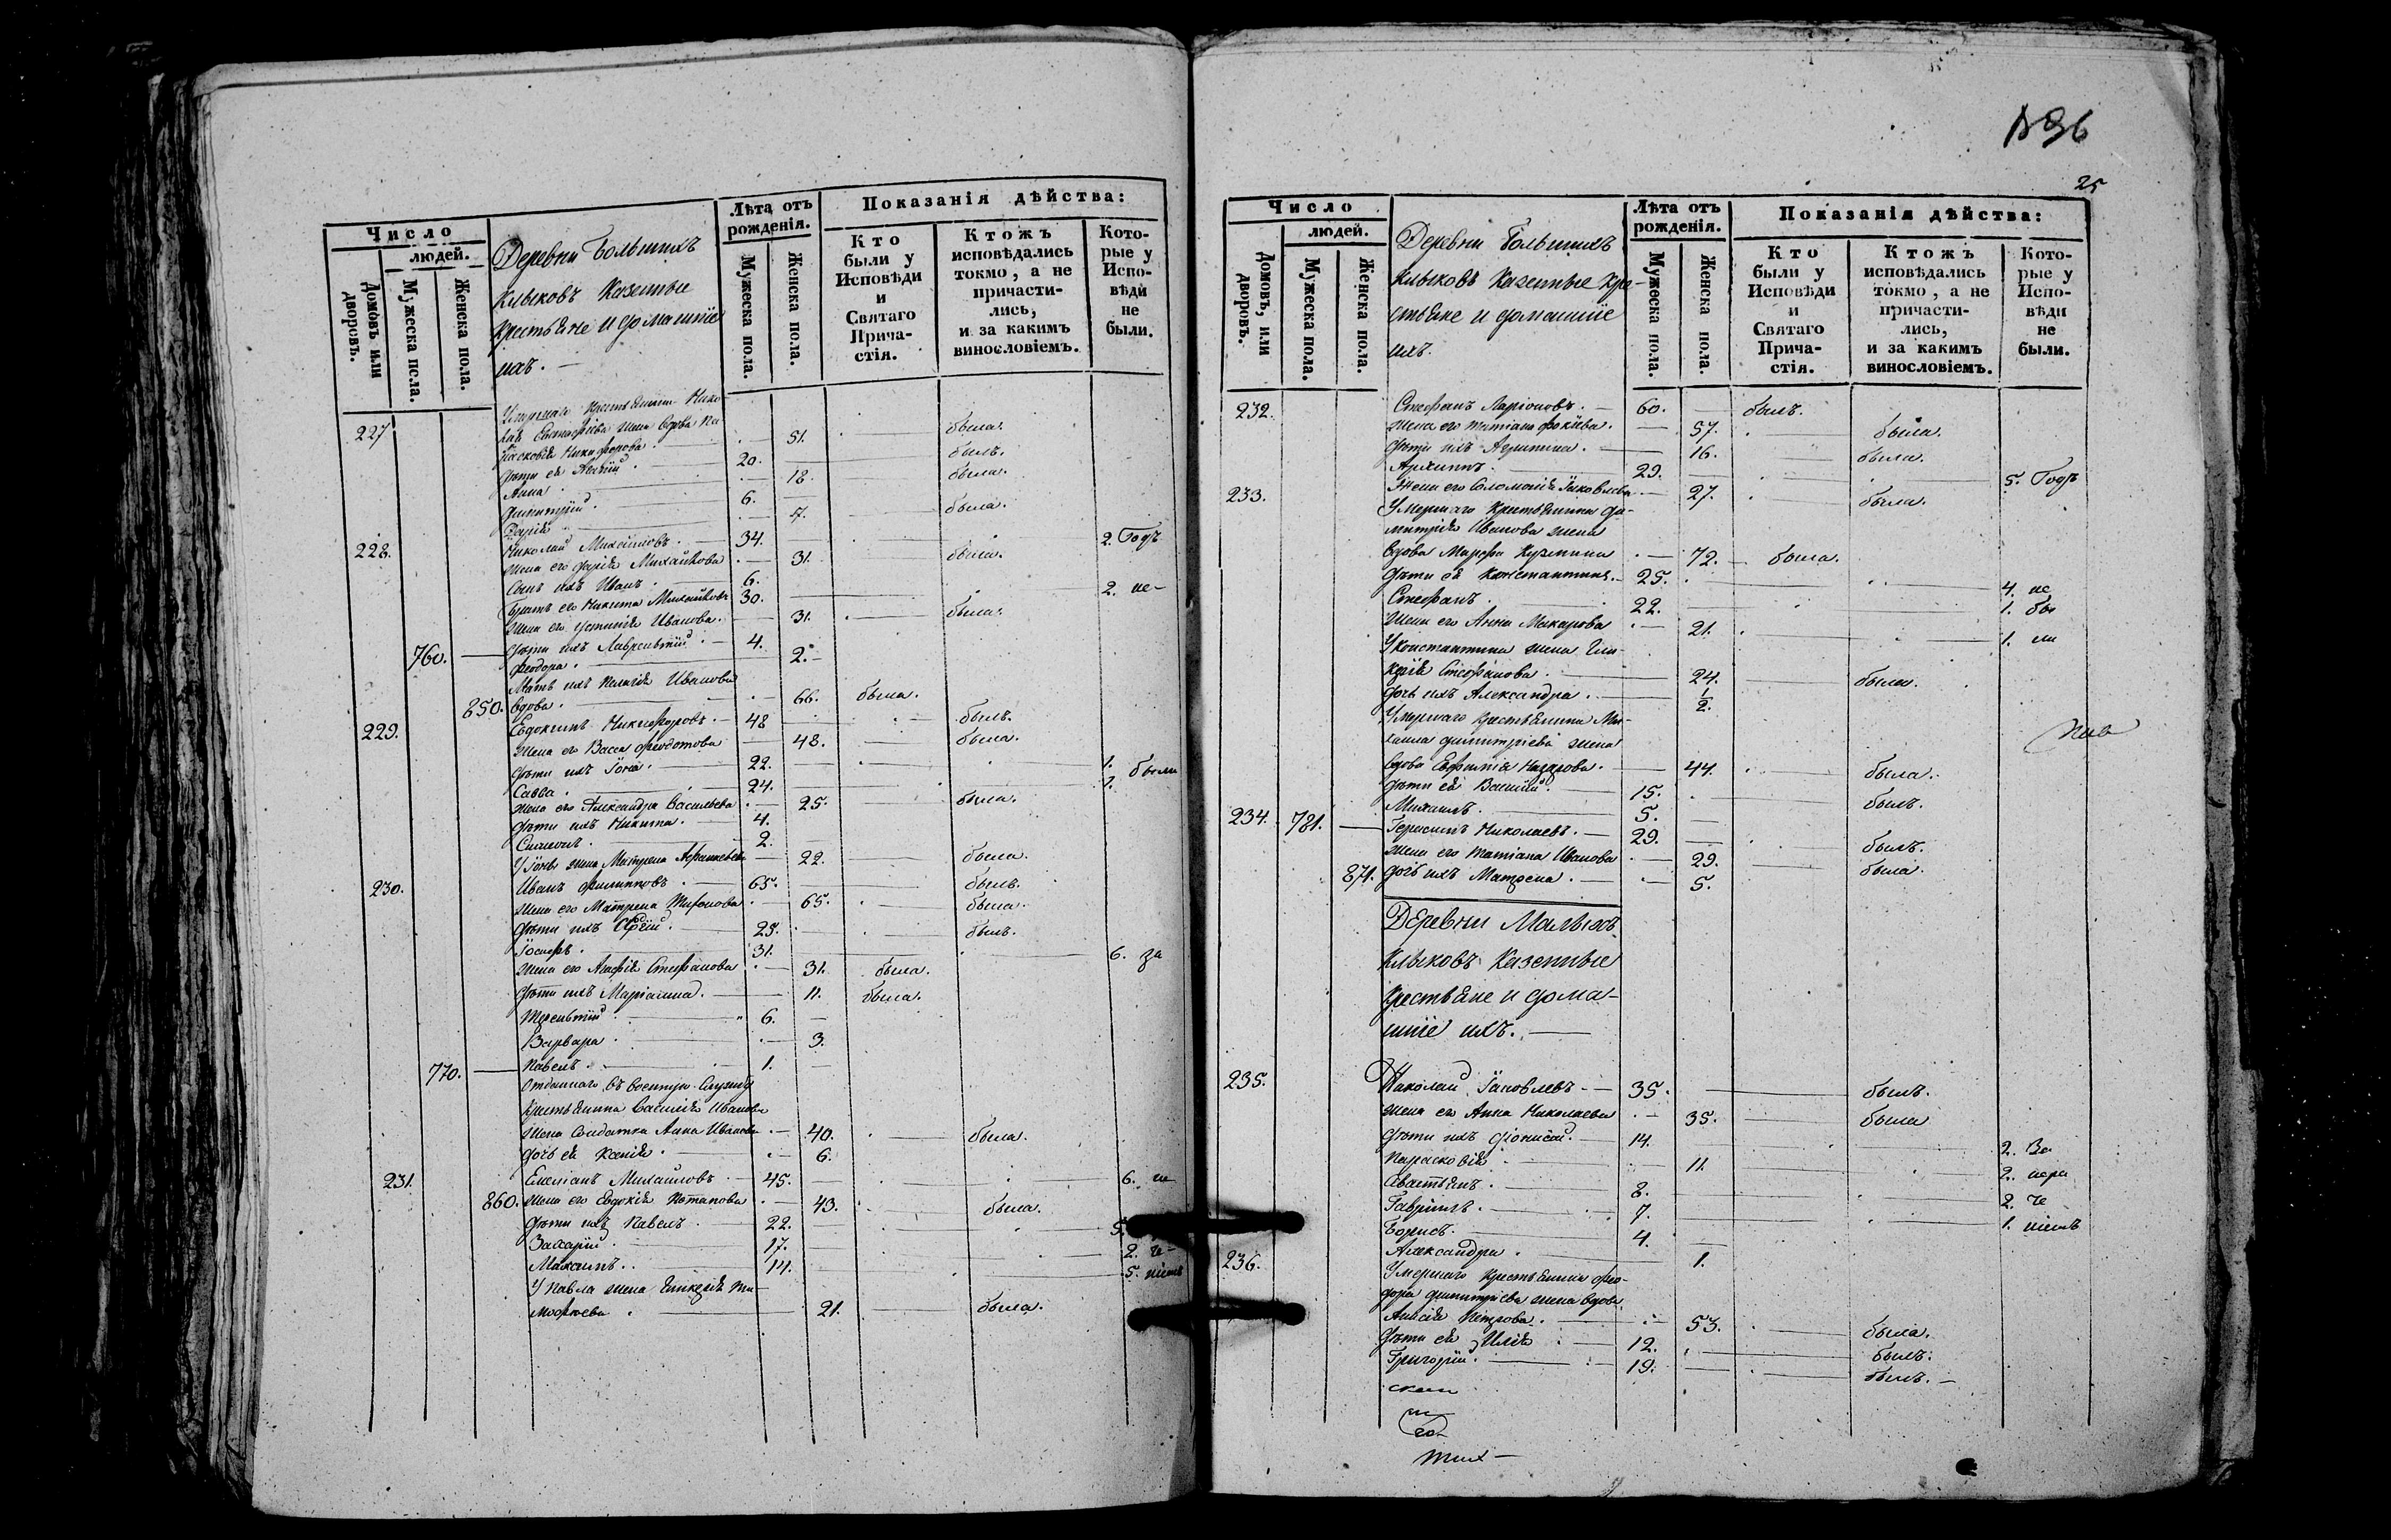 Число
людей.
Домовъ или дворовъ.
Мужеска пола.
Женска пола.
Деревни Большихъ
Клыковъ Казенные
Крестьяне и домашніе
ихъ. —
Лѣта отъ рожденія.
Мужеска пола.
Женска пола.
Показанія дѣйства:
Кто были у Исповѣди и Святаго Прича-стія.
Ктожъ исповѣдались токмо, а не причасти-лись, и за какимъ винословіемъ.
Кото-рые у Испо-вѣди не были.
Умершаго Крестьянина Нико-
227 лая жена вдова Па-
расковія Никифорова. — 51. была.
дѣти ея 20. — былъ.
Анна. — 18. была.
Димитрій. 6.
Дарія — 7. была.
228. Николай Михайловъ. — 34. 2. Годъ
жена его Дарія Михайлова — 31. была.
Сынъ ихъ Иванъ. — 6.
Братъ его Никита Михайловъ 30. 2. не-
жена его Устинія Иванова. — 31. была.
760. — дѣти ихъ Лаврентій. — 4.
Феодора. — 2. —
Мать ихъ Пелагія Иванова
850. вдова. — 66. была.
229. Евдокимъ Никифоровъ. — 48 былъ.
жена его Васса Феодотова — 48. была.
дѣти ихъ Іона. — 22. 1.
Савва. — 24. 1. были
жена его Александра Васильева — 25. была.
дѣти ихъ Никита. — 4.
Симеонъ. — 2.
У Іоны жена Матрена — 22. была.
230. Иванъ Филипповъ. — 65. былъ.
жена его Матрена — 65. была.
дѣти ихъ — былъ.
Іосифъ. — 31. 6. за
жена его Стефанова — 31. была.
дѣти ихъ Маріамна. — 11. была.
Терентій — 6. —
Варвара. — 3.
770. — Павелъ. — 1. —
Отданнаго въ военную службу
Крестьянина Василія Иванова
жена солдатка Анна Иванова — 40. была.
дочь ея Ксенія. — 6.
231. Емеліанъ Михайловъ 45. 6.
860. жена его Евдокія Потапова — 43. была.
дѣти ихъ Павелъ 22. 5.
Захарій. 17. 2. че-
Максимъ. 14. 5. ніемъ
У Павла жена Гликерія Ти-
мофеева. — 21. была.
25
Число
людей.
Домовъ, или дворовъ.
Мужеска пола.
Женска пола.
Деревни Большихъ
Клыковъ Казенные Кре-
стьяне и домашніе
ихъ.
Лѣта отъ рожденія.
Мужеска пола.
Женска пола.
Показанія дѣйства:
Кто были у Исповѣди и Святаго Прича-стія.
Ктожъ исповѣдались токмо, а не причасти-лись, и за какимъ винословіемъ.
Кото-рые у Испо-вѣди не были.
232. Стефанъ Ларіоновъ. — 60. — былъ.
жена его Татіана Фокіева. — 57. была.
дѣти ихъ Агрипина. — 16. была.
Архиппъ. — 29. 5. Годъ
233. Жена его Соломонія Іаковлева — 27. была.
Умершаго Крестьянина Ди-
митрія Иванова жена
вдова Марфа Кузмина — 72. — была.
дѣти ея Константинъ. — 25. 4. не
Стефанъ. 22. 1. бы
жена его Анна Макарова — 21. 1. ли
У Константина жена Гли-
керія Стефанова. — 24. была.
дочь ихъ Александра. — 1/2.
Умершаго Крестьянина Ми-
хаила Димитріева жена
вдова Евфимія Назарова. — 44. была.
дѣти ея Василій. — 15. былъ.
Михаилъ. — 5. —
234. 781. — Герасимъ Николаевъ. — 29. былъ.
жена его Татіана Иванова — 29. была.
871. дочь ихъ Матрена. — 5.
Деревни Малыхъ
Клыковъ Казенные
Крестьяне и дома-
шніе ихъ. —
235. Николай Іаковлевъ — 35. былъ.
жена его Анна Николаева — 35. была
дѣти ихъ Діонисій. — 14. 2. За
Парасковія — 11. 2. нера
Савастьянъ. 8. 2. че
Гавріилъ. 7. 1. ніемъ
Борисъ. 4. —
Александра. — 1.
236. Умершаго Крестьянина Фео-
дора Димитріева жена вдова
Анисія Петрова. — 53. была.
дѣти ея Илія — 12. былъ.
Григорій. — 19. былъ. —